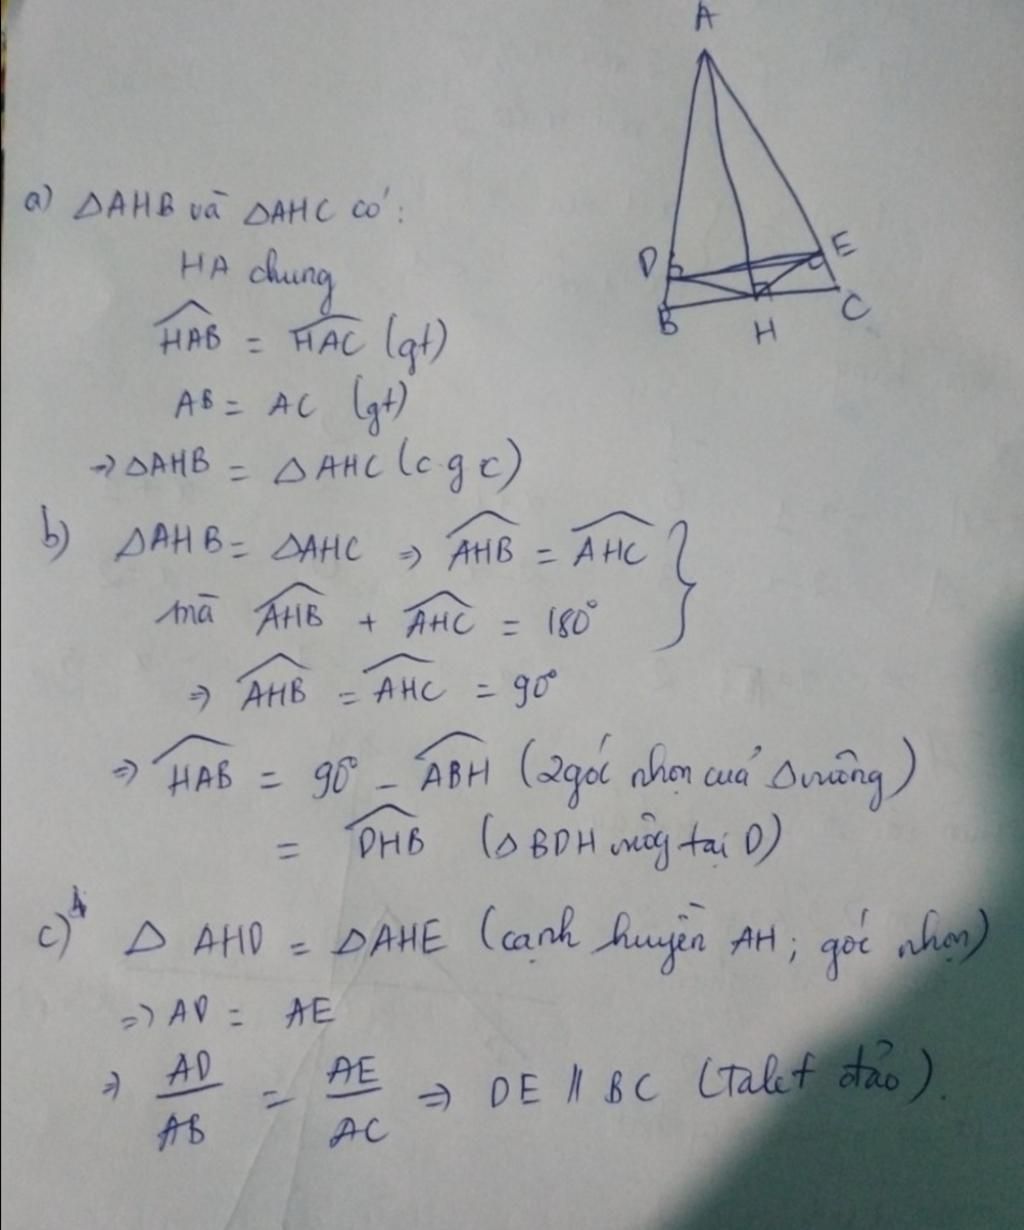 A
a) ΔAHB và ΔAHC có:
HA chung
D
E
B
H
C
\widehat{HAB} = \widehat{HAC} (gt)
AB = AC (gt)
→ ΔAHB = ΔAHC (c.g.c)
b) ΔAHB = ΔAHC ⇒ \widehat{AHB} = \widehat{AHC} }
mà \widehat{AHB} + \widehat{AHC} = 180°
⇒ \widehat{AHB} = \widehat{AHC} = 90°
⇒ \widehat{HAB} = 90° - \widehat{ABH} (2 góc nhọn cuả Δvuông)
= \widehat{DHB} (ΔBDH vuông tại D)
c) Δ AHD = ΔAHE (cạnh huyền AH; góc nhọn)
⇒ AD = AE
⇒ AD/AB = AE/AC ⇒ DE // BC (Talet đảo).